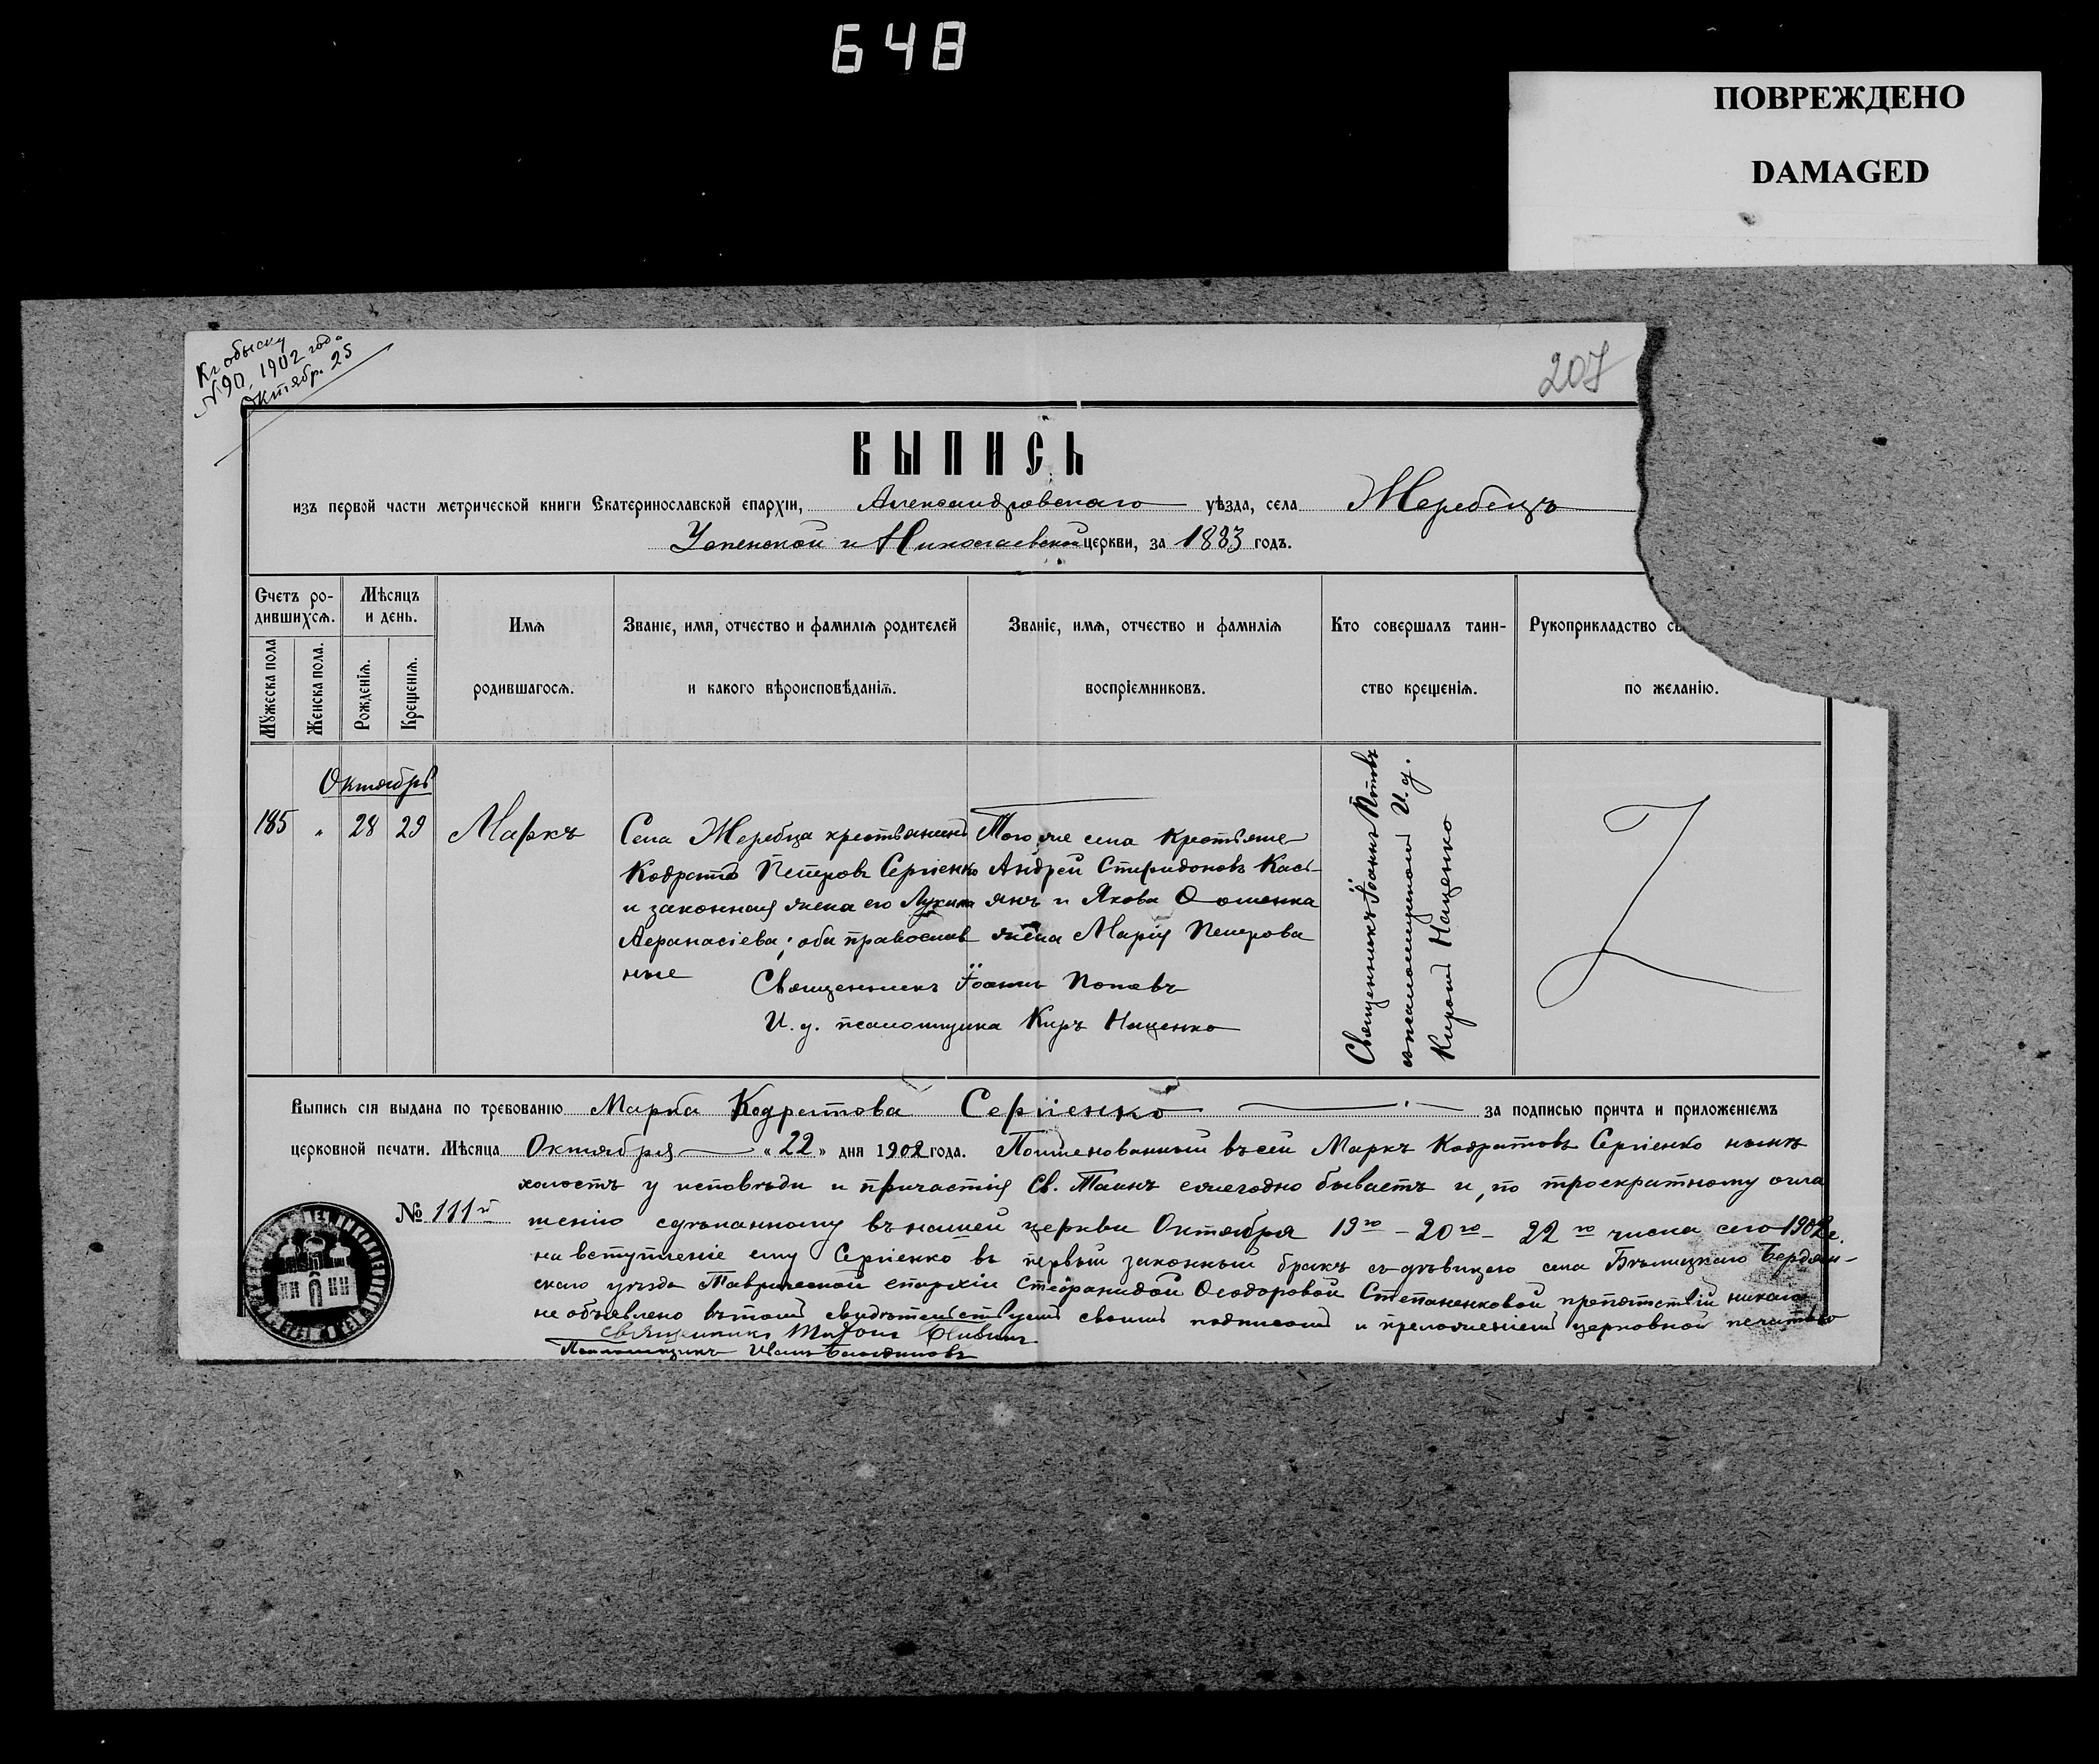 648
ПОВРЕЖДЕНО
DAMAGED
Къ обыску
№ 90, 1902 года
Октябр. 25
207
ВЫПИСЬ
изъ первой части метрической книги Екатеринославской епархіи, Александровскаго уѣзда, села Жеребецъ
Успенской и Николаевской церкви, за 1883 годъ.
Счетъ ро-
дившихся.
Мужеска пола
Женска пола.
Мѣсяцъ
и день.
Рожденія.
Крещенія.
Имя
родившагося.
Званіе, имя, отчество и фамилія родителей
и какого вѣроисповѣданія.
Званіе, имя, отчество и фамилія
воспріемниковъ.
Кто совершалъ таин-
ство крещенія.
Рукоприкладство св
по желанію.
Октябрь
185 „ 28 29
Маркъ
Села Жеребца крестьянинъ
Кодратъ Петровъ Сергіенко
и законная жена его
Афанасіева; оба православ
ные
Того же села крестьяне
Андрей Спиридоновъ Кась-
янъ и Якова Ѳоменка
жена Марія Петрова
Священникъ Іоаннъ Поповъ
И. д. псаломщика Киръ Наценко
Священникъ Іоаннъ Поповъ
съ псаломщикомъ И. д.
Киромъ Наценко
Выпись сія выдана по требованію Марка Кодратова Сергіенко за подписью причта и приложеніемъ
церковной печати. Мѣсяца Октября « 22 » дня 1902 года. Поименованный въ сей Маркъ Кодратовъ Сергіенко нынѣ
холостъ у исповѣди и причастія Св. Таинъ ежегодно бываетъ и, по троекратному огла
№ 111й
шенію сдѣланному въ нашей церкви Октября 19го – 20го – 22го числа сего 1902 г.
на вступленіе ему Сергіенко въ первый законный бракъ съ дѣвицею села Бѣлицкаго Бердян-
скаго уѣзда Таврической епархіи Стефанидой Ѳеодоровой Степаненковой препятствій никаго
не объявлено въ томъ свидѣтельствуемъ своимъ подписомъ и приложеніемъ церковной печатью
Священникъ
Псаломщикъ Иванъ